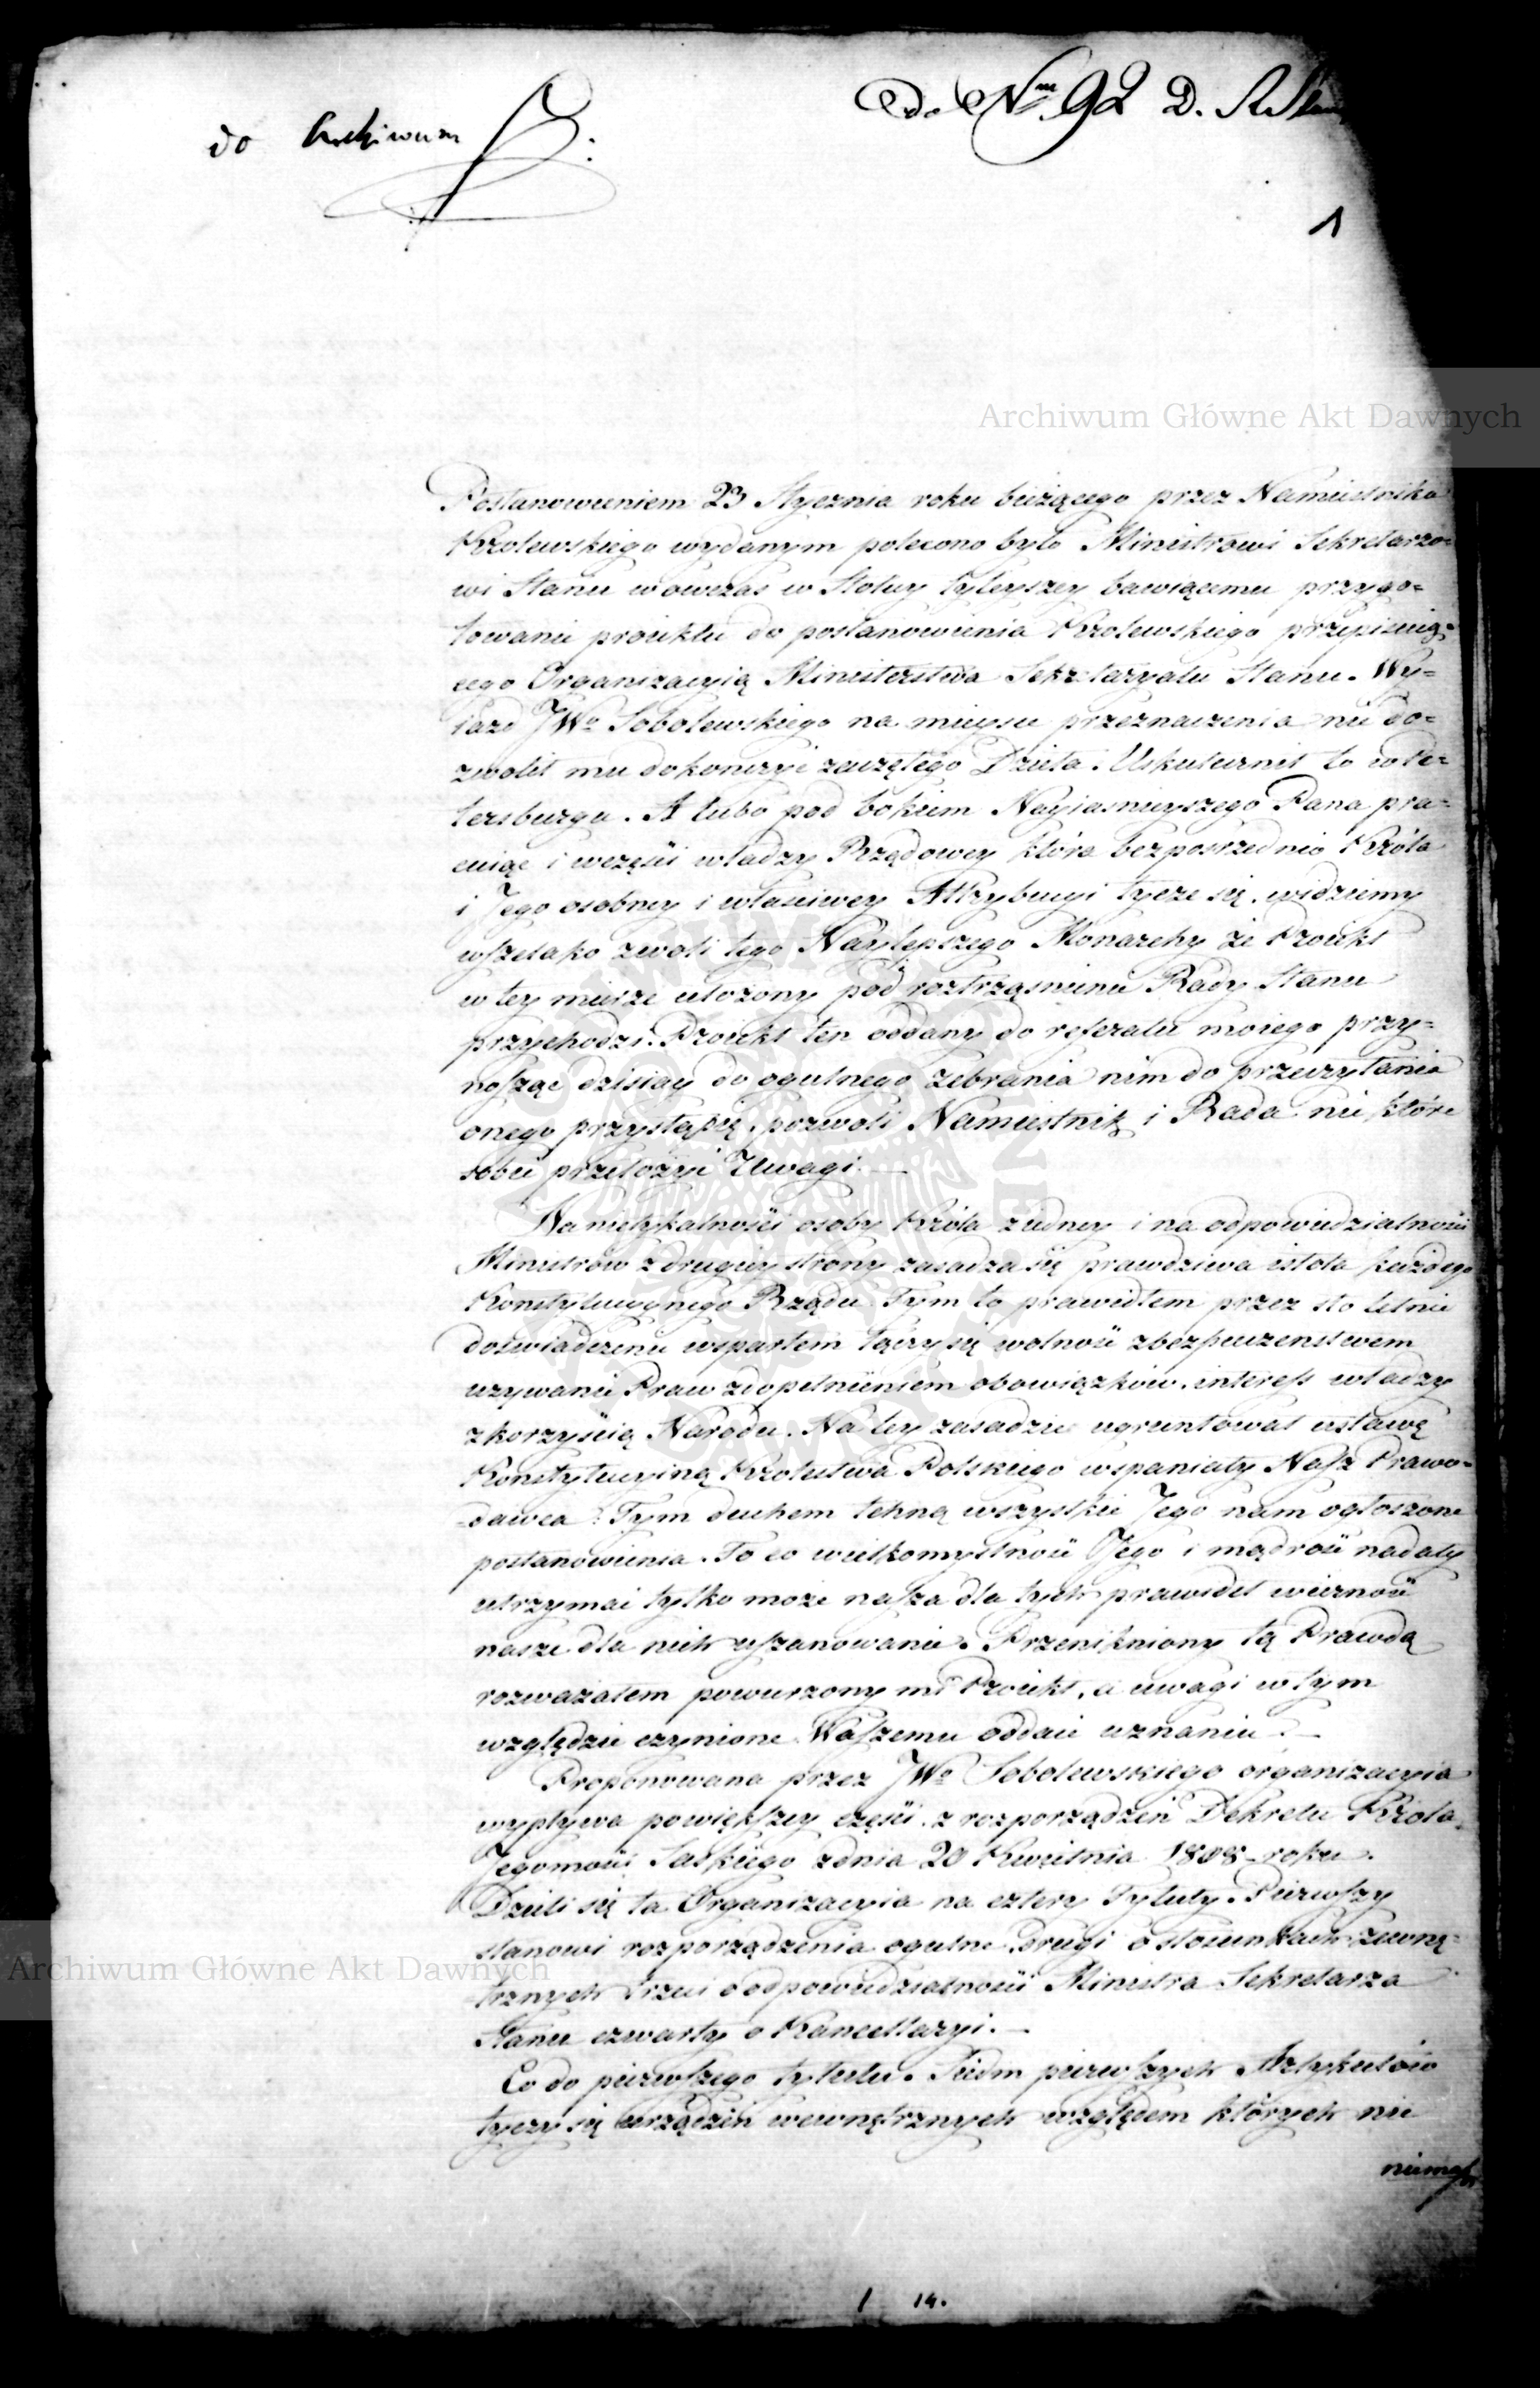 do Archiwum
do Nru 92 D. R. Stanu
1
Archiwum Główne Akt Dawnych
Postanowieniem 23 Stycznia roku bieżącego przez Namiestnika
Krolewskiego wydanym polecono było Ministrowi Sekretarzo=
wi Stanu wowczas w Stolicy tuteyszey bawiącemu przygo=
towanie proiektu do postanowienia Krolewskiego przepisuią=
cego Organizacyią Ministerstwa Sekretaryatu Stanu. Wy=
iazd JWo Sobolewskiego na mieysce przeznaczenia nie do=
zwolił mu dokonczyć zaczętego Dzieła. Uskutecznił to w Pe=
tersburgu. A lubo pod bokiem Nayiasnieyszego Pana pra=
cuiąc i w części władzy Rządowey która bezpośrzednio Króla
i Jego osobney i własciwey Attrybucyi tycze się, widziemy
wszelako z woli tego Naylepszego Monarchy że Proiekt
w tey mierze ułożony pod roztrząsnienie Rady Stanu
przychodzi. Proiekt ten oddany do referatu moiego przy=
nosząc dzisiay do ogulnego zebrania nim do przeczytania
onego przystąpię, pozwoli Namiestnik i Rada nie które
sobie przełożyć Uwagi. —
Na nietykalności osoby Króla z iedney i na odpowiedzialności
Ministrów z drugiey strony zasadza się prawdziwa istota każdego
Konstytucyynego Rządu. Tym to prawidłem przez sto letnie
doświadczenie wspartem łączy się wolność z bezpieczenstwem
używanie Praw z dopełnieniem obowiązków, interess władzy
z korzyścią Narodu. Na tey zasadzie ugruntował ustawę
Konstytucyiną Krolestwa Polskiego wspaniały Nasz Prawo=
=dawca. Tym duchem tchną wszystkie Jego nam ogłoszone
postanowienia. To co wielkomyslność Jego i mądrość nadały
utrzymać tylko może nasza dla tych prawideł wierność
nasze dla nich uszanowanie. Przenikniony tą Prawdą
rozważałem powierzony mi Proiekt, a uwagi w tym
względzie czynione Waszemu oddaię uznaniu. —
Proponowana przez JWo Sobolewskiego organizacyia
wypływa po większey części z rozporządzeń Dekretu Króla
Jegomości Saskiego z dnia 20 Kwietnia 1808 roku.
Dzieli się ta Organizacyia na cztery Tytuły. Pierwszy
stanowi rozporządzenia ogulne, drugi o stosunkach zewnę=
trznych trzeci o odpowiedzialności Ministra Sekretarza
Stanu czwarty o Kancellaryi. —
Co do pierwszego tytułu. Siedm pierwszych Artykułów
tyczy się urządzeń wewnętrznych względem których nic
niemasz
Archiwum Główne Akt Dawnych
1 14.